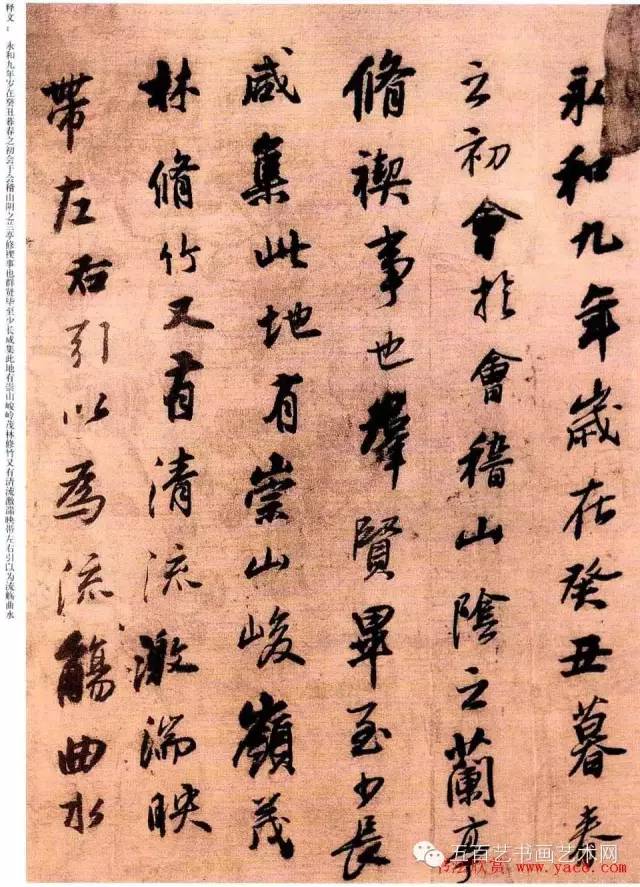 永和九年歲在癸丑暮春
之初會於會稽山陰之蘭亭
脩禊事也羣賢畢至少長
咸集此地有崇山峻嶺茂
林脩竹又有清流激湍映
帶左右引以為流觴曲水
释文：永和九年岁在癸丑暮春之初会于会稽山阴之兰亭修禊事也群贤毕至少长咸集此地有崇山峻岭茂林修竹又有清流激湍映带左右引以为流觞曲水
五百艺书画艺术网
书法欣赏 www.yac8.com